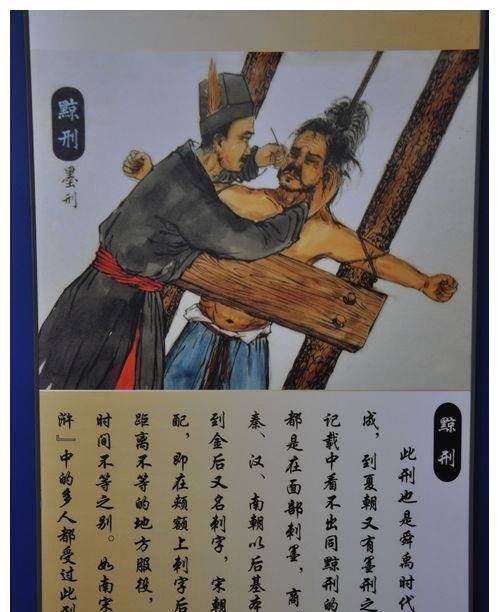 黥刑
墨刑
黥刑
此刑也是舜禹时代
成，到夏朝又有墨刑之
记载中看不出同黥刑的
都是在面部刺墨，商
秦、汉、南朝以后基本
到金后又名刺字，宋朝
配，即在颊额上刺字后
距离不等的地方服役，
时间不等之别。如南宋
浒』中的多人都受过此刑